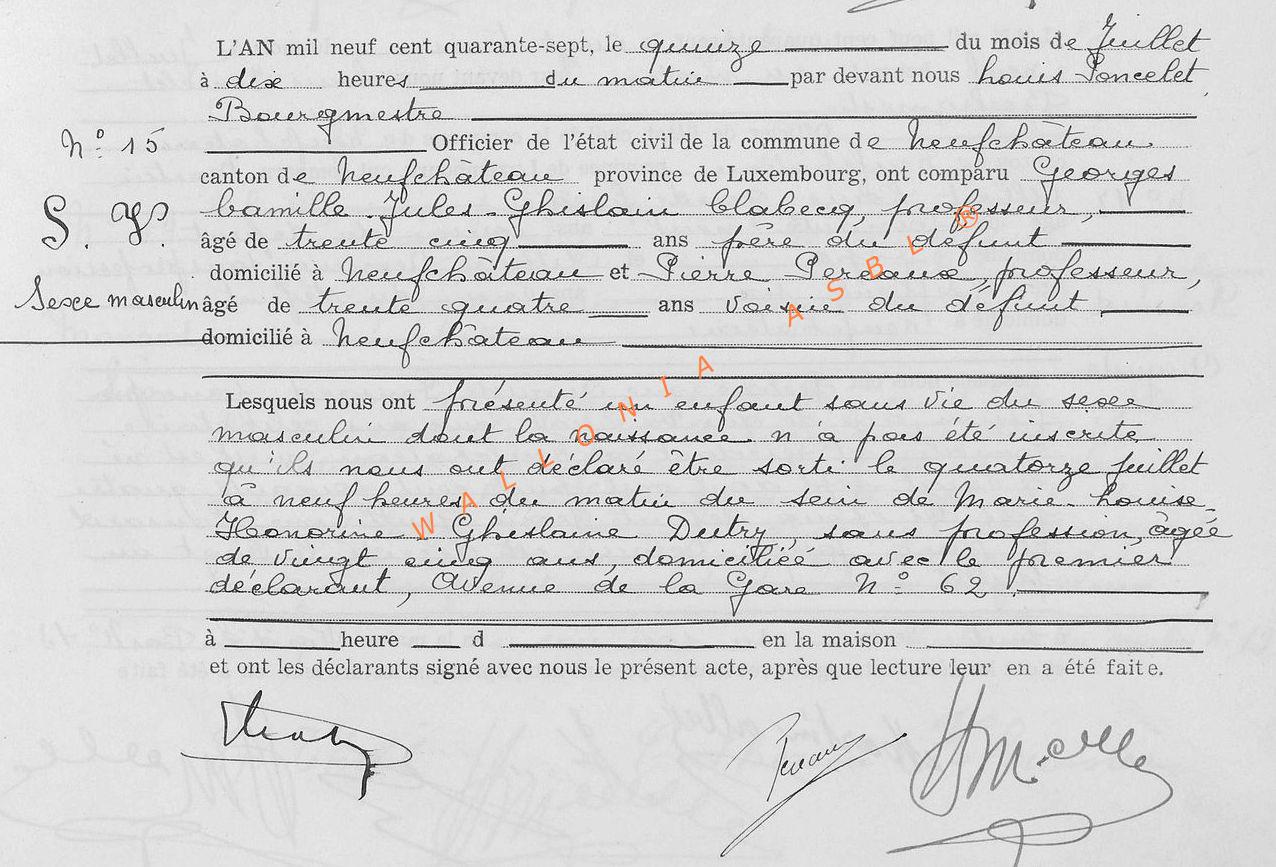 L'AN mil neuf cent quarante-sept, le quinze du mois de Juillet
à dix heures du matin par devant nous Louis Poncelet
Bourgmestre
N° 15
Officier de l'état civil de la commune de Neufchâteau
canton de Neufchâteau province de Luxembourg, ont comparu Georges
S. V.
Camille Jules Ghislain Clabecq, professeur,
âgé de trente cinq ans frère du défunt
domicilié à Neufchâteau et Pierre Pereaux, professeur,
Sexe masculin
âgé de trente quatre ans voisin du défunt
domicilié à Neufchâteau
Lesquels nous ont présenté un enfant sans vie du sexe
masculin dont la naissance n'a pas été inscrite
qu'ils nous ont déclaré être sorti le quatorze juillet
à neuf heures du matin du sein de Marie-Louise-
Honorine-Ghislaine Dutry, sans profession, âgée
de vingt cinq ans, domiciliée avec le premier
déclarant, Avenue de la Gare N° 62.
à heure d en la maison
et ont les déclarants signé avec nous le présent acte, après que lecture leur en a été faite.
WALLONIA ASBL ®